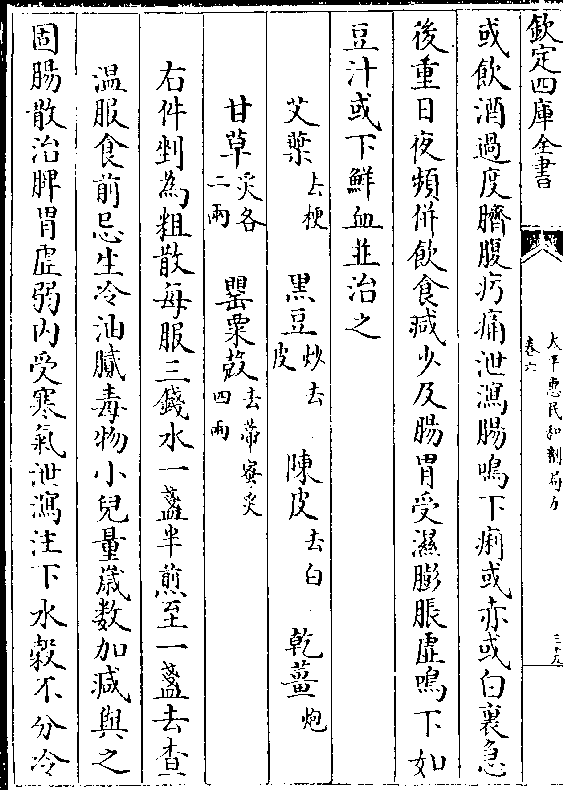 欽定四庫全書
太平惠民和劑局方
卷六
或飲酒過度臍腹㽲痛泄瀉腸鳴下痢或赤或白裏急
後重日夜頻併飲食減少及腸胃受濕膨脹虛鳴下如
豆汁或下鮮血並治之
艾葉去梗 黑豆炒去皮 陳皮去白 乾薑炮
甘草炙各二兩 罌粟殻去蒂蜜炙四兩
右件剉為粗散每服三錢水一盞半煎至一盞去查
温服食前忌生冷油膩毒物小兒量嵗數加減與之
固腸散治脾胃虛弱内受寒氣泄瀉注下水榖不分冷